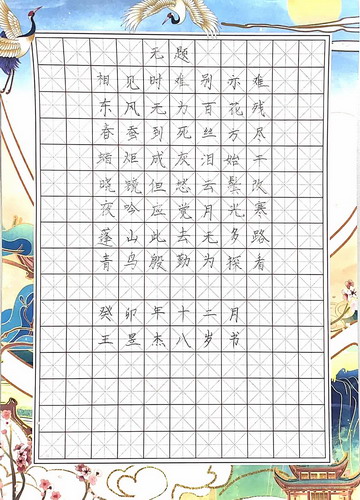 无题
相见时难别亦难
东风无力百花残
春蚕到死丝方尽
蜡炬成灰泪始干
晓镜但愁云鬓改
夜吟应觉月光寒
蓬山此去无多路
青鸟殷勤为探看
癸卯年十二月
王昱杰八岁书